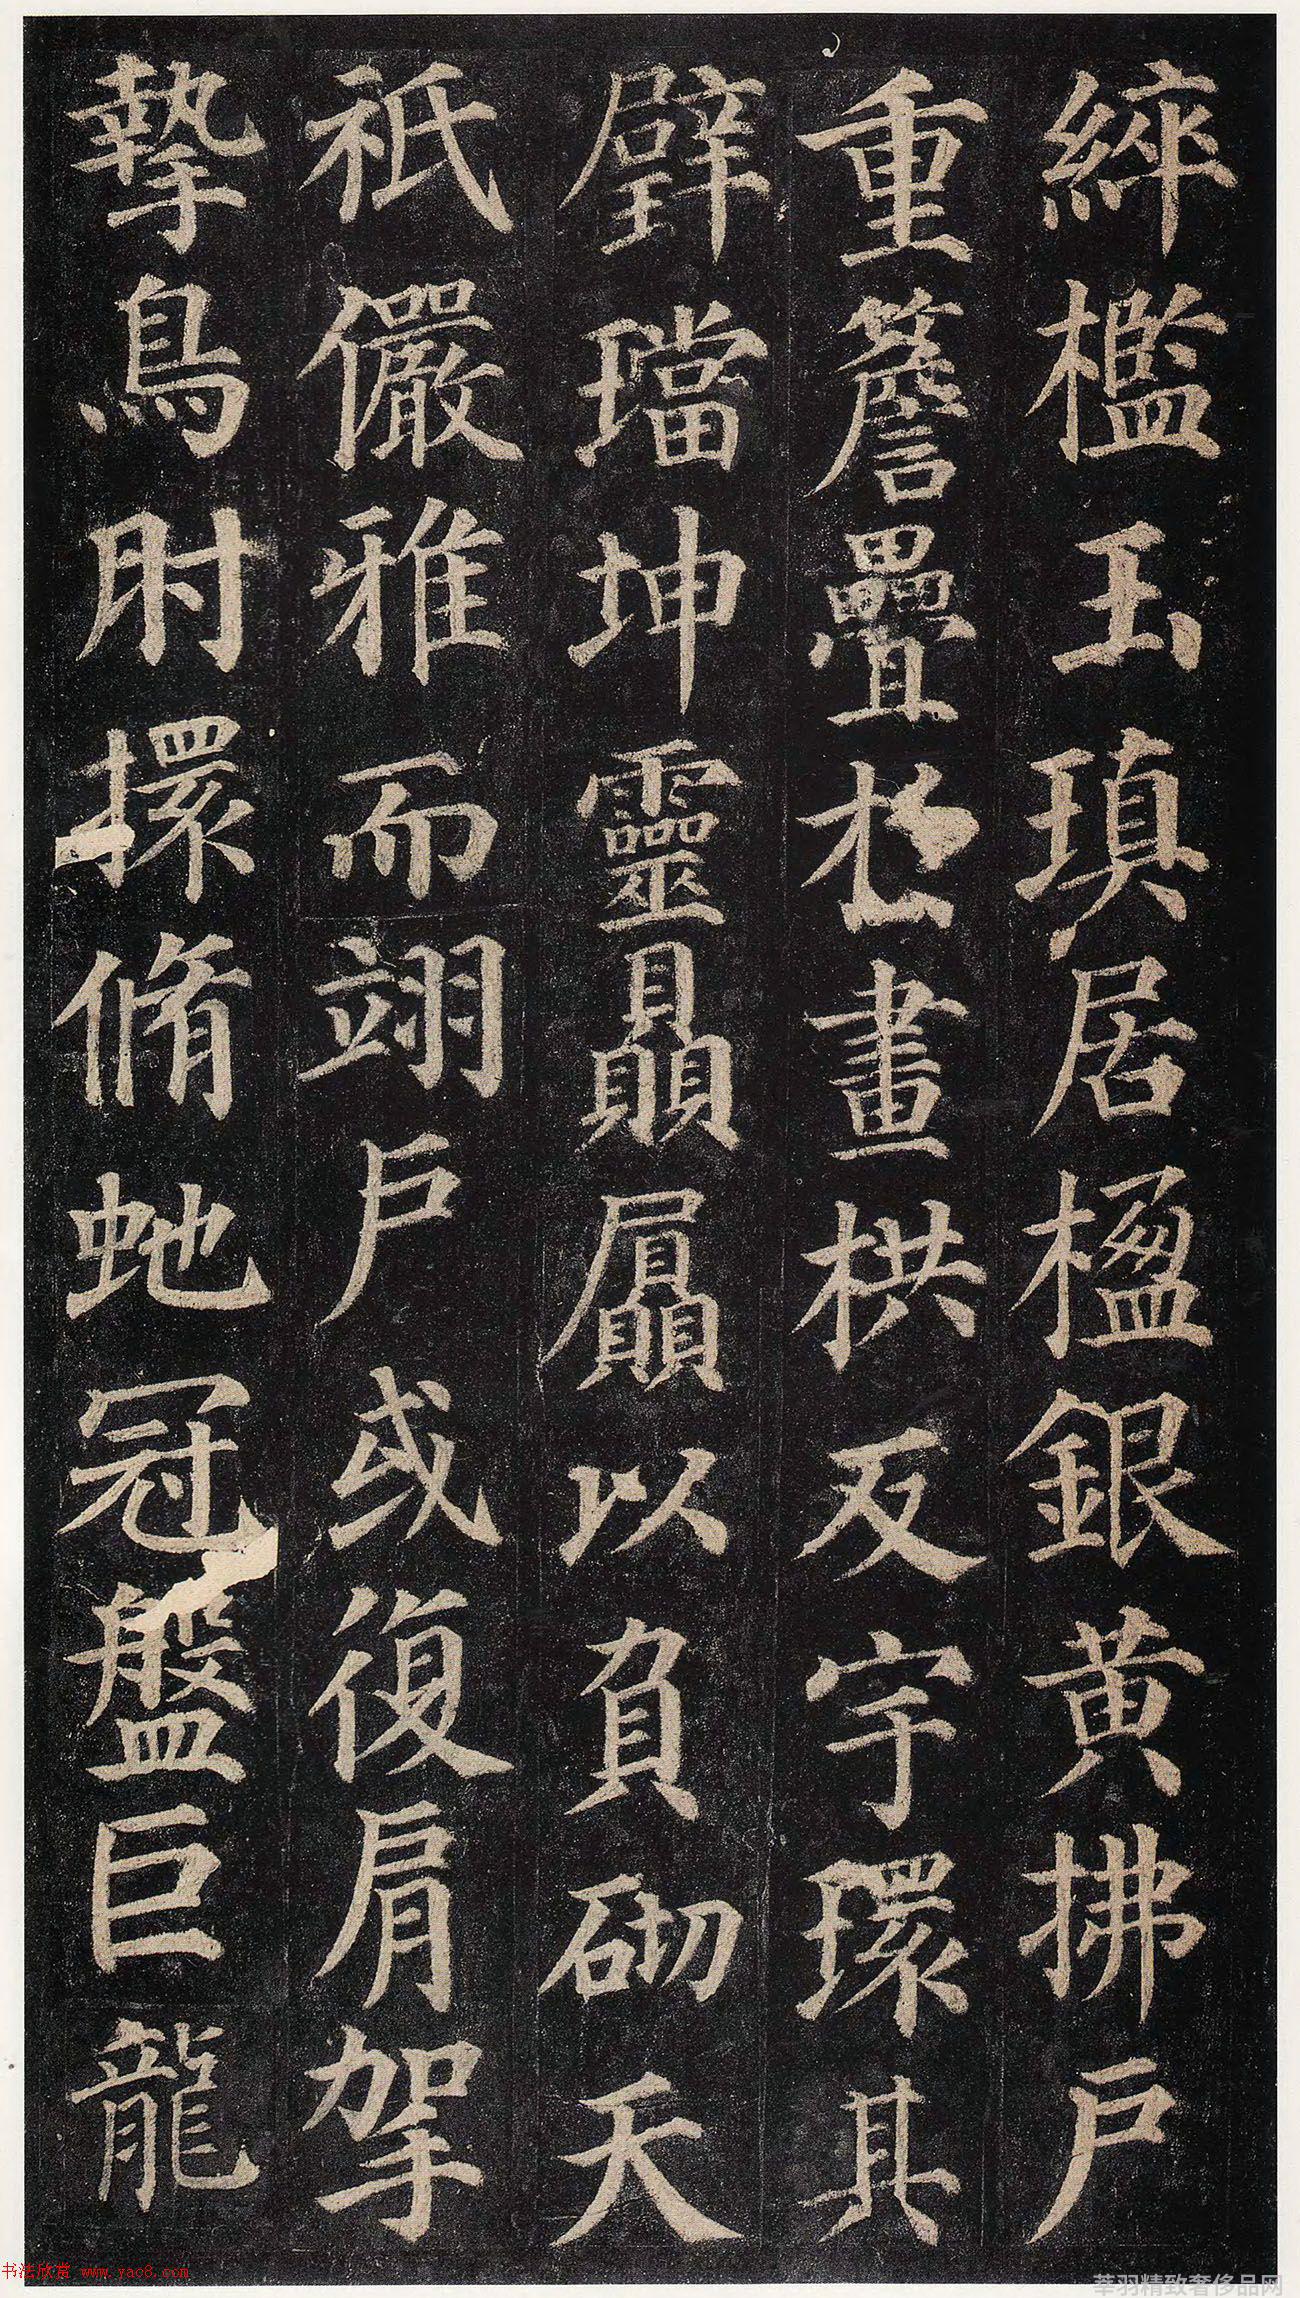 綷檻玉瑱居楹銀黃拂戶
重簷疊於畫栱反宇環其
璧璫坤靈贔屭以負砌天
祇儼雅而翊戶或復肩挐
摯鳥肘擐脩虵冠盤巨龍
书法欣赏 www.yac8.com
莘羽精致奢侈品网